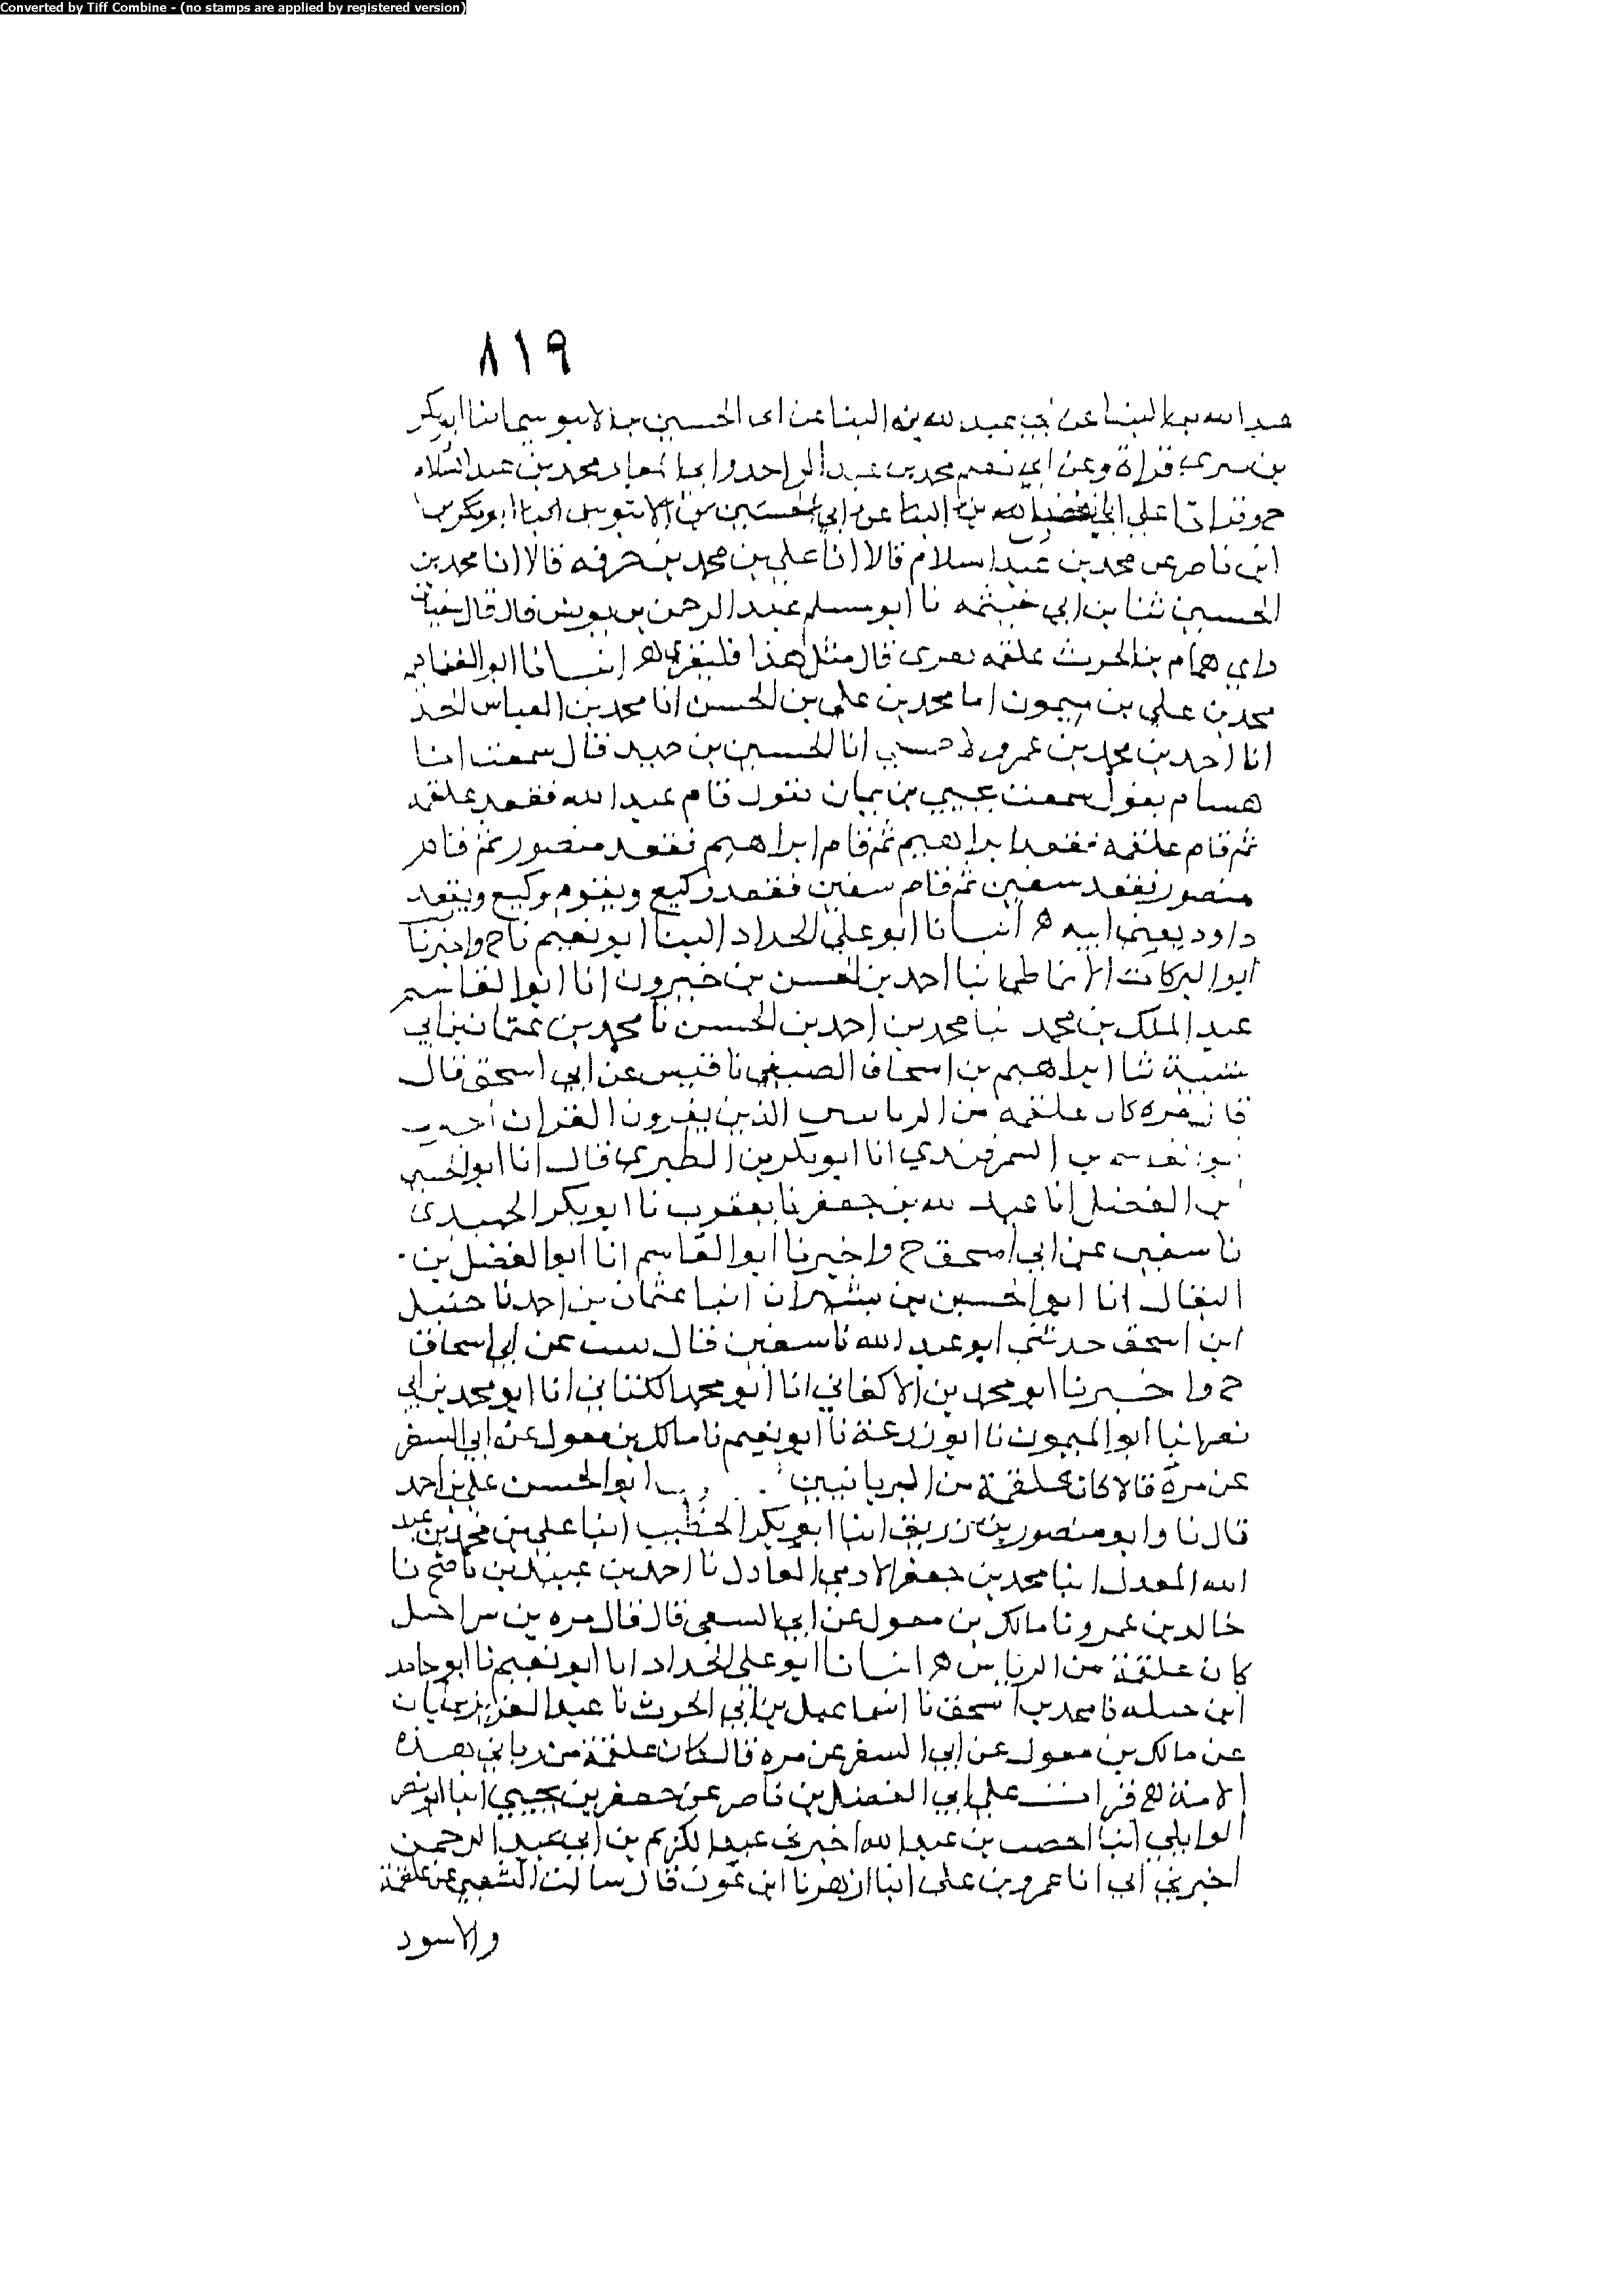 Converted by Tiff Combine - (no stamps are applied by registered version)
٨١٩
عبد الله بن البنا عن عبيد الله بن البنا عن ابى الحسين بن الابنوسي انا ابو بكر
بن سرى قراة وعن ابي نعيم محمد بن عبد الواحد وابي محمد بن عبد السلام
ح وقرانا على ابي الله بن البنا عن ابي الحسين بن الابنوسي انبا ابو بكر بن
ابن ناصر عن محمد بن عبد السلام قالا انا علي بن محمد بن خزفه قالا انا محمد بن
الحسين ثنا بن ابي خيثمه نا ابو مسلم عبد الرحمن بن يونس قال قال سفيان
راي همام بن الحرث علقمه يقرى قال مثل هذا فليقرى ه انبانا ابو الغنايم
محمد بن علي بن ميمون انا محمد بن علي بن الحسن انا محمد بن العباس الحذ
انا احمد بن محمد بن عمرو الاحمسي انا الحسين بن حميد قال سمعت ابا
هسام يقول سمعت يحيي بن يمان يقول قام عبد الله فقعد علقمه
ثم قام علقمه فقعد ابراهيم ثم قام ابراهيم فقعد منصور ثم قام
منصور فقعد سفين ثم قام سفين فقعد وكيع ويقوم وكيع ويقعد
داود يعني ابيه ه انبانا ابو علي الحداد انبا ابو نعيم نا ح واخبرنا
ابو البركات الانماطي انبا احمد بن الحسن بن خيرون انا ابو القاسم
عبد الملك بن محمد نبا محمد بن احمد بن الحسن نا محمد بن عثمان بن ابي
شيبة ثنا ابراهيم بن اسحاق الصيني نا قيس عن ابي اسحق قال
قال مره كان علقمه من الذين يقرون القران
السمرقندي انا ابو بكر بن الطبرى قال انا ابو الحسين
بن الفضل انا عبد الله بن جعفر نا يعقوب نا ابو بكر الحميدى
نا سفين عن ابي اسحق ح واخبرنا ابو القاسم انا ابو الفضل بن
البقال انا ابو الحسين بن بشران انبا عثمان بن احمد نا حنبل
ابن اسحق حدثني ابو عبد الله نا سفين قال عن ابي اسحاق
ح واخبرنا ابو محمد بن الاكفاني انا ابو محمد الكتاني انا ابو محمد بن ابي
نصر انبا ابو الميمون نا ابو زرعة نا ابو نعيم نا مالك بن معول عن ابي السفر
عن مرة قالا كان علقمة من الربانيين ابو الحسن علي بن احمد
قال نا وابو منصور بن زريق انبا ابو بكر الخطيب انبا علي بن محمد بن عبد
الله المعدل انبا محمد بن جعفر الادمي العادل نا احمد بن عبيد بن ناصح نا
خالد بن عمرو نا مالك بن معول عن ابي السعى قال قال مره بن سراحيل
كان علقمة من ه انبانا ابو علي الحداد انا ابو نعيم نا ابو حامد
ابن حبله نا محمد بن اسحق نا اسماعيل بن ابي الحرث نا عبد العزيز بن ابان
عن مالك بن معول عن ابي السفر عن مره قال كان علقمة من رباني هذه
الامة ه قرات علي ابي الفضل بن ناصر عن جعفر بن يحيي انبا ابو نصر
الوايلي انبا الخصيب بن عبد الله اخبرني عبد الكريم بن ابي عبد الرحمن
اخبرني ابي انا عمرو بن على انبا ازهر نا ابن عون قال سالت الشعبي عن علقمة
والاسود